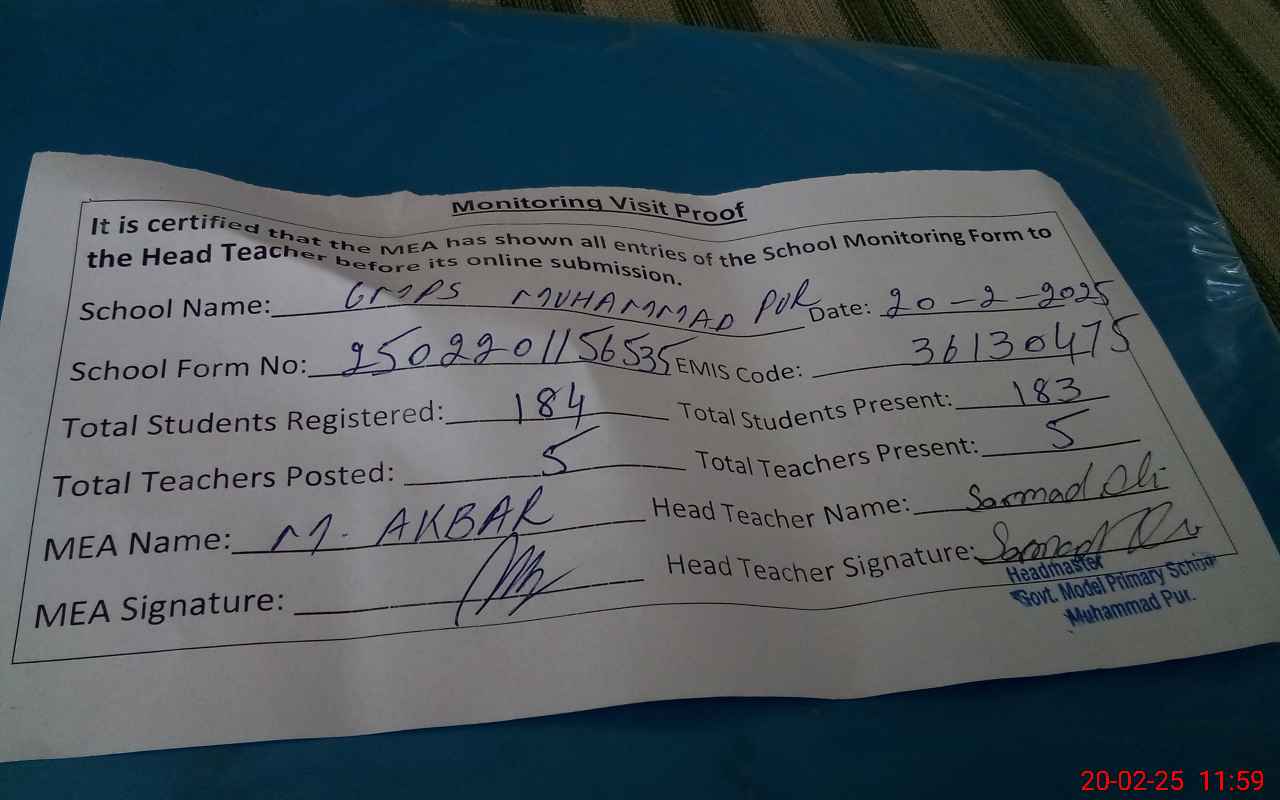 Monitoring Visit Proof
It is certified that the MEA has shown all entries of the School Monitoring Form to
the Head Teacher before its online submission.
School Name: GMPS MUHAMMAD PUR Date: 20-2-2025
School Form No: 2502201156535 EMIS Code: 36130475
Total Students Registered: 184 Total Students Present: 183
Total Teachers Posted: 5 Total Teachers Present: 5
MEA Name: M. AKBAR Head Teacher Name: Sarmad Ali
MEA Signature: Head Teacher Signature: Sarmad Ali
Headmaster
Govt. Model Primary School
Muhammad Pur.
20-02-25 11:59